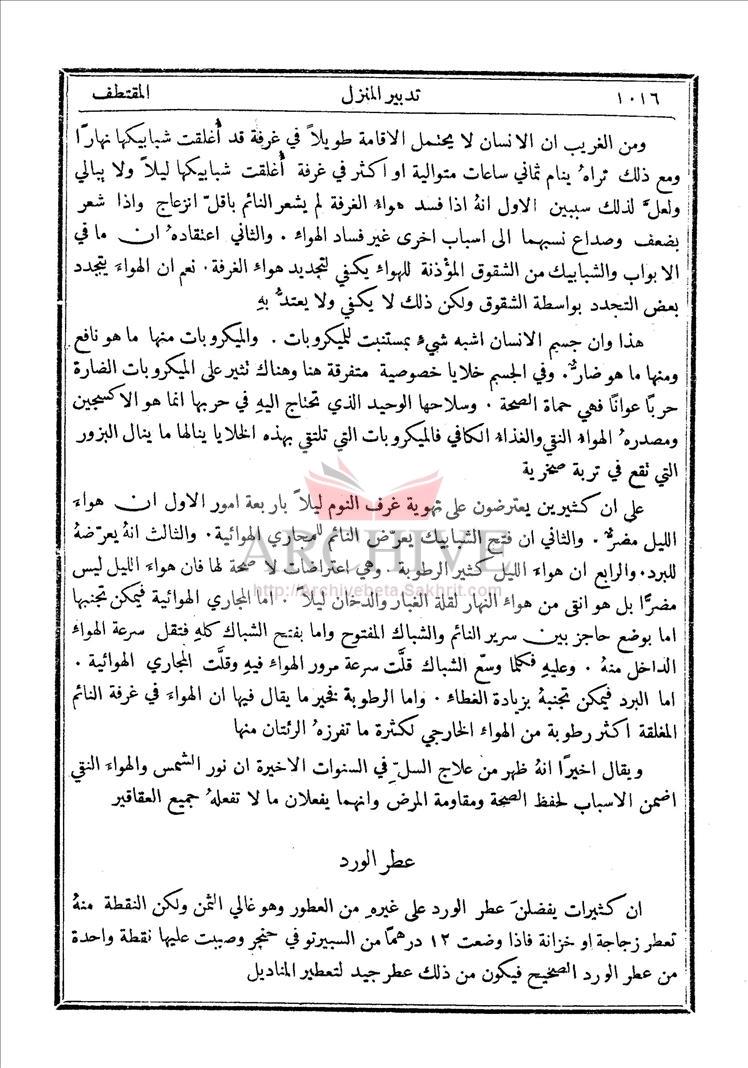 ١٠١٦ تدبير المنزل المقتطف
ومن الغريب ان الانسان لا يحتمل الاقامة طويلاً في غرفة قد أُغلقت شبابيكها نهارًا
ومع ذلك تراهُ ينام ثماني ساعات متوالية او اكثر في غرفة أُغلقت شبابيكها ليلاً ولا يبالي
ولعلَّ لذلك سببين الاول انهُ اذا فسد هواءُ الغرفة لم يشعر النائم باقلّ انزعاج واذا شعر
بضعف وصداع نسبهما الى اسباب اخرى غير فساد الهواء . والثاني اعتقادهُ ان ما في
الابواب والشبابيك من الشقوق المؤذنة للهواء يكفي لتجديد هواء الغرفة . نعم ان الهواء يتجدد
بعض التجدد بواسطة الشقوق ولكن ذلك لا يكفي ولا يعتدُّ بهِ
هذا وان جسم الانسان اشبه شيءٍ بمستنبت للميكروبات . والميكروبات منها ما هو نافع
ومنها ما هو ضارٌّ . وفي الجسم خلايا خصوصية متفرقة هنا وهناك تثير على الميكروبات الضارة
حربًا عوانًا فهي حماة الصحة . وسلاحها الوحيد الذي تحتاج اليهِ في حربها انما هو الاكسجين
ومصدرهُ الهواءُ النقي والغذاءُ الكافي فالميكروبات التي تلتقي بهذه الخلايا ينالها ما ينال البزور
التي تقع في تربة صخرية
على ان كثيرين يعترضون على تهوية غرف النوم ليلاً باربعة امور الاول ان هواء
الليل مضرٌّ . والثاني ان فتح الشبابيك يعرّض النائم للمجاري الهوائية . والثالث انهُ يعرّضهُ
للبرد . والرابع ان هواء الليل كثير الرطوبة . وهي اعتراضات لا صحة لها فان هواء الليل ليس
مضرًّا بل هو انقى من هواء النهار لقلة الغبار والدخان ليلاً . اما المجاري الهوائية فيمكن تجنبها
اما بوضع حاجز بين سرير النائم والشباك المفتوح واما بفتح الشباك كلهِ فتقل سرعة الهواء
الداخل منهُ . وعليهِ فكلما وسّع الشباك قلَّت سرعة مرور الهواء فيهِ وقلَّت المجاري الهوائية .
اما البرد فيمكن تجنبهُ بزيادة الغطاء . واما الرطوبة فخير ما يقال فيها ان الهواء في غرفة النائم
المغلقة اكثر رطوبة من الهواء الخارجي لكثرة ما تفرزهُ الرئتان منها
ويقال اخيرًا انهُ ظهر من علاج السلّ في السنوات الاخيرة ان نور الشمس والهواء النقي
اضمن الاسباب لحفظ الصحة ومقاومة المرض وانهما يفعلان ما لا تفعلهُ جميع العقاقير
عطر الورد
ان كثيرات يفضلنَ عطر الورد على غيرهِ من العطور وهو غالي الثمن ولكن النقطة منهُ
تعطر زجاجة او خزانة فاذا وضعت ١٢ درهمًا من السبيرتو في حنجر وصببت عليها نقطة واحدة
من عطر الورد الصحيح فيكون من ذلك عطر جيد لتعطير المناديل
ARCHIVE
http://Archivebeta.Sakhrit.com